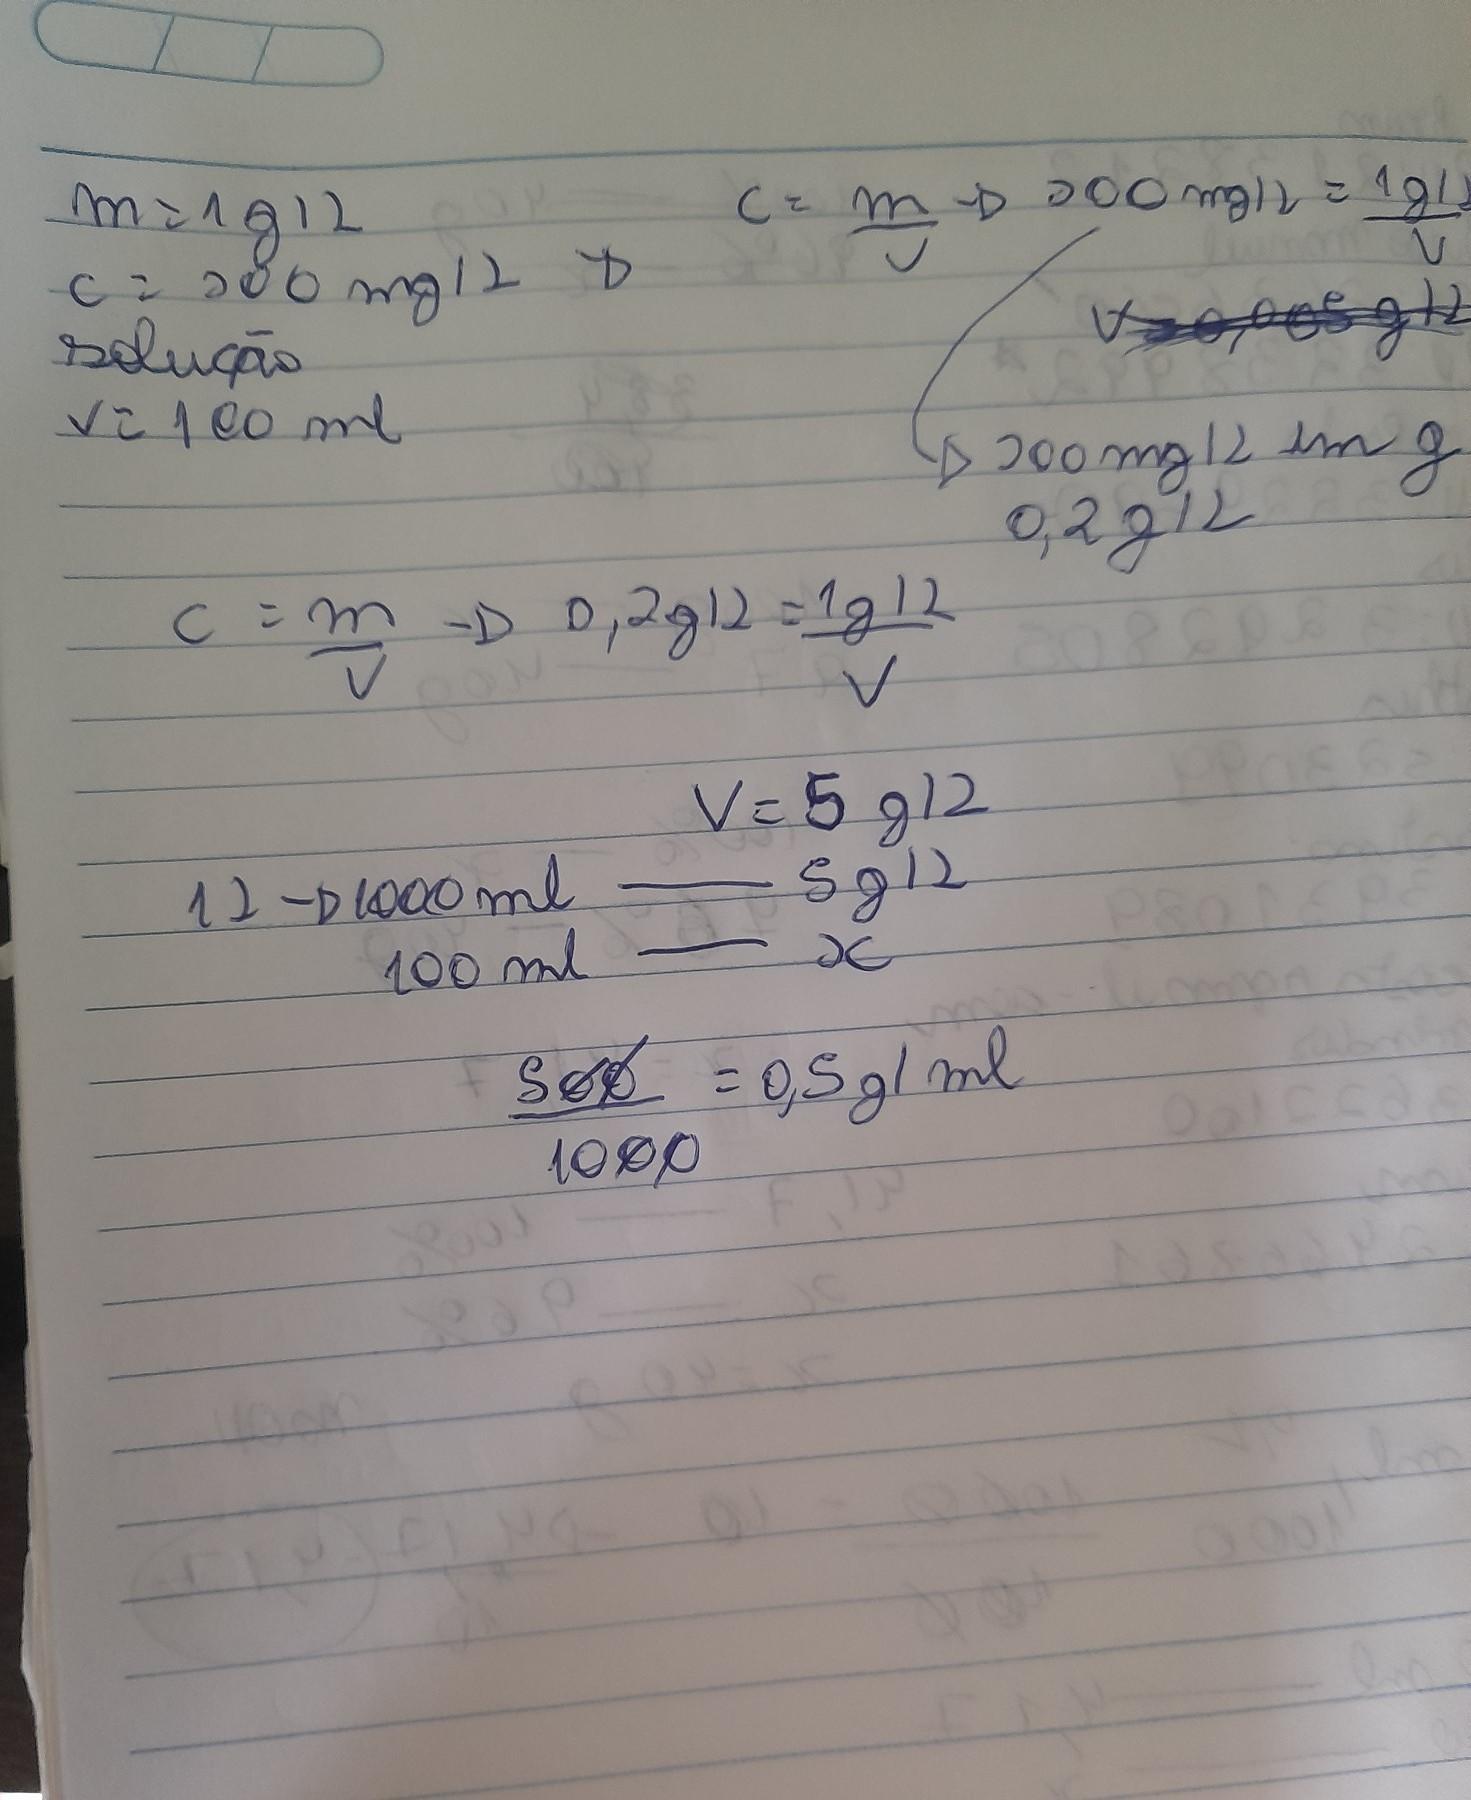 m = 1g/L
c = 200 mg/L →
solução
v = 100 ml
C = m/V → 200 mg/L = 1g/L/V
→ 200 mg/L em g
0,2g/L
C = m/V → 0,2g/L = 1g/L/V
V = 5 g/L
1L → 1000 ml — 5g/L
100 ml — x
500/1000 = 0,5g/ml